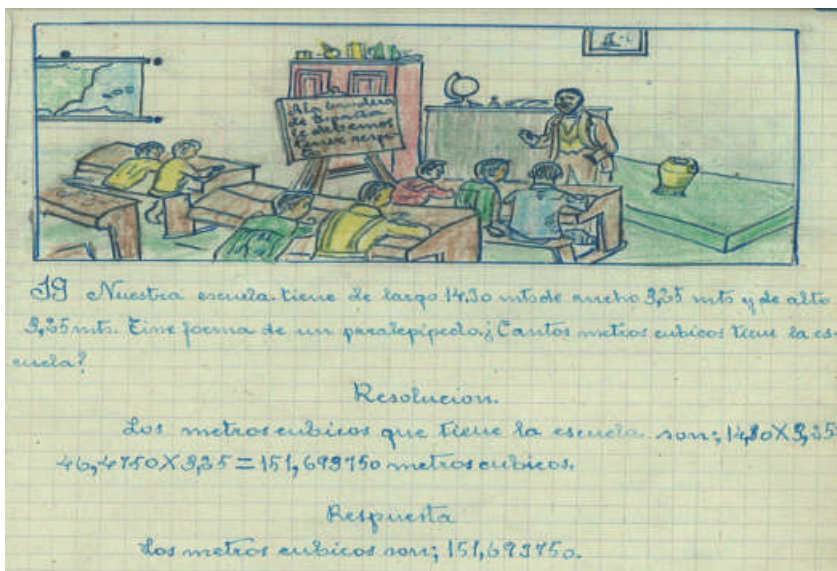 A la bandera
de España
le debemos
tener respe-
to
19 Nuestra escuela. tiene de largo 14.30 mts de ancho 3,25 mts y de alto
3,25 mts. Tine forma de un paralepipedo.¿Cantos metros cubicos tiene la es-
cuela?
Resolucion.
Los metros cubicos que tiene la escuela son; 14,30X3,25
46,4750X3,25=151,693750 metros cubicos.
Respuesta
Los metros cubicos son; 151,693750.